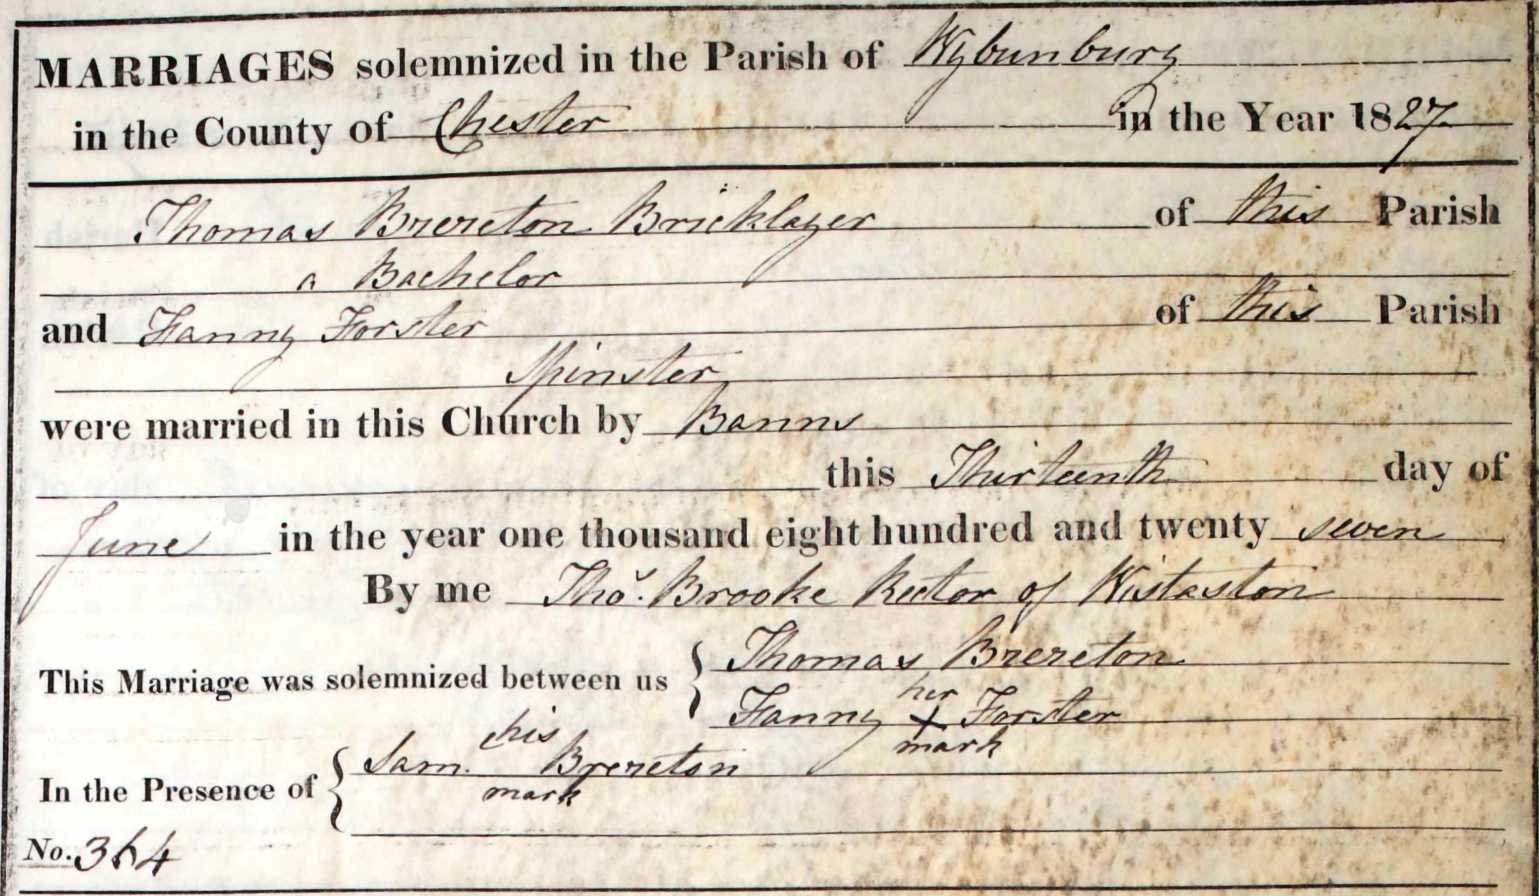 MARRIAGES solemnized in the Parish of Wybunbury
in the County of Chester in the Year 1827
Thomas Brereton Bricklayer of this Parish
a Bachelor
and Fanny Forster of this Parish
Spinster
were married in this Church by Banns
this Thirteenth day of
June in the year one thousand eight hundred and twenty seven
By me Thos. Brooke Rector of Wistaston
This Marriage was solemnized between us { Thomas Brereton
her
Fanny X Forster
mark
his
In the Presence of { Sam. Brereton
mark
No. 364